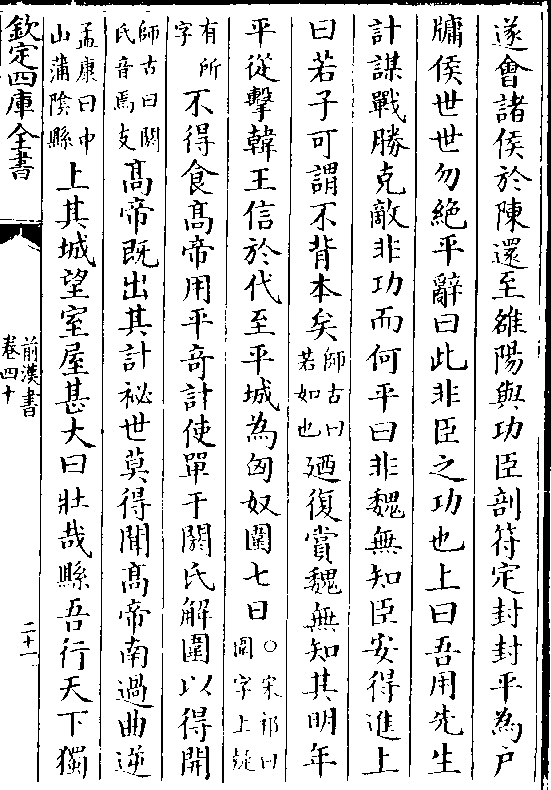 遂會諸侯於陳還至雒陽與功臣剖符定封封平為戶
牖侯世世勿絶平辭曰此非臣之功也上曰吾用先生
計謀戰勝克敵非功而何平曰非魏無知臣安得進上
曰若子可謂不背本矣師古曰若如也廼復賞魏無知其明年
平從擊韓王信於代至平城為匈奴圍七日○宋祁曰圍字上疑
有所字不得食髙帝用平竒計使單于閼氏解圍以得開
師古曰閼氏音焉支髙帝既出其計祕世莫得聞髙帝南過曲逆
孟康曰中山蒲陰縣上其城望室屋甚大曰壯哉縣吾行天下獨
欽定四庫全書
前漢書
卷四十
二十一